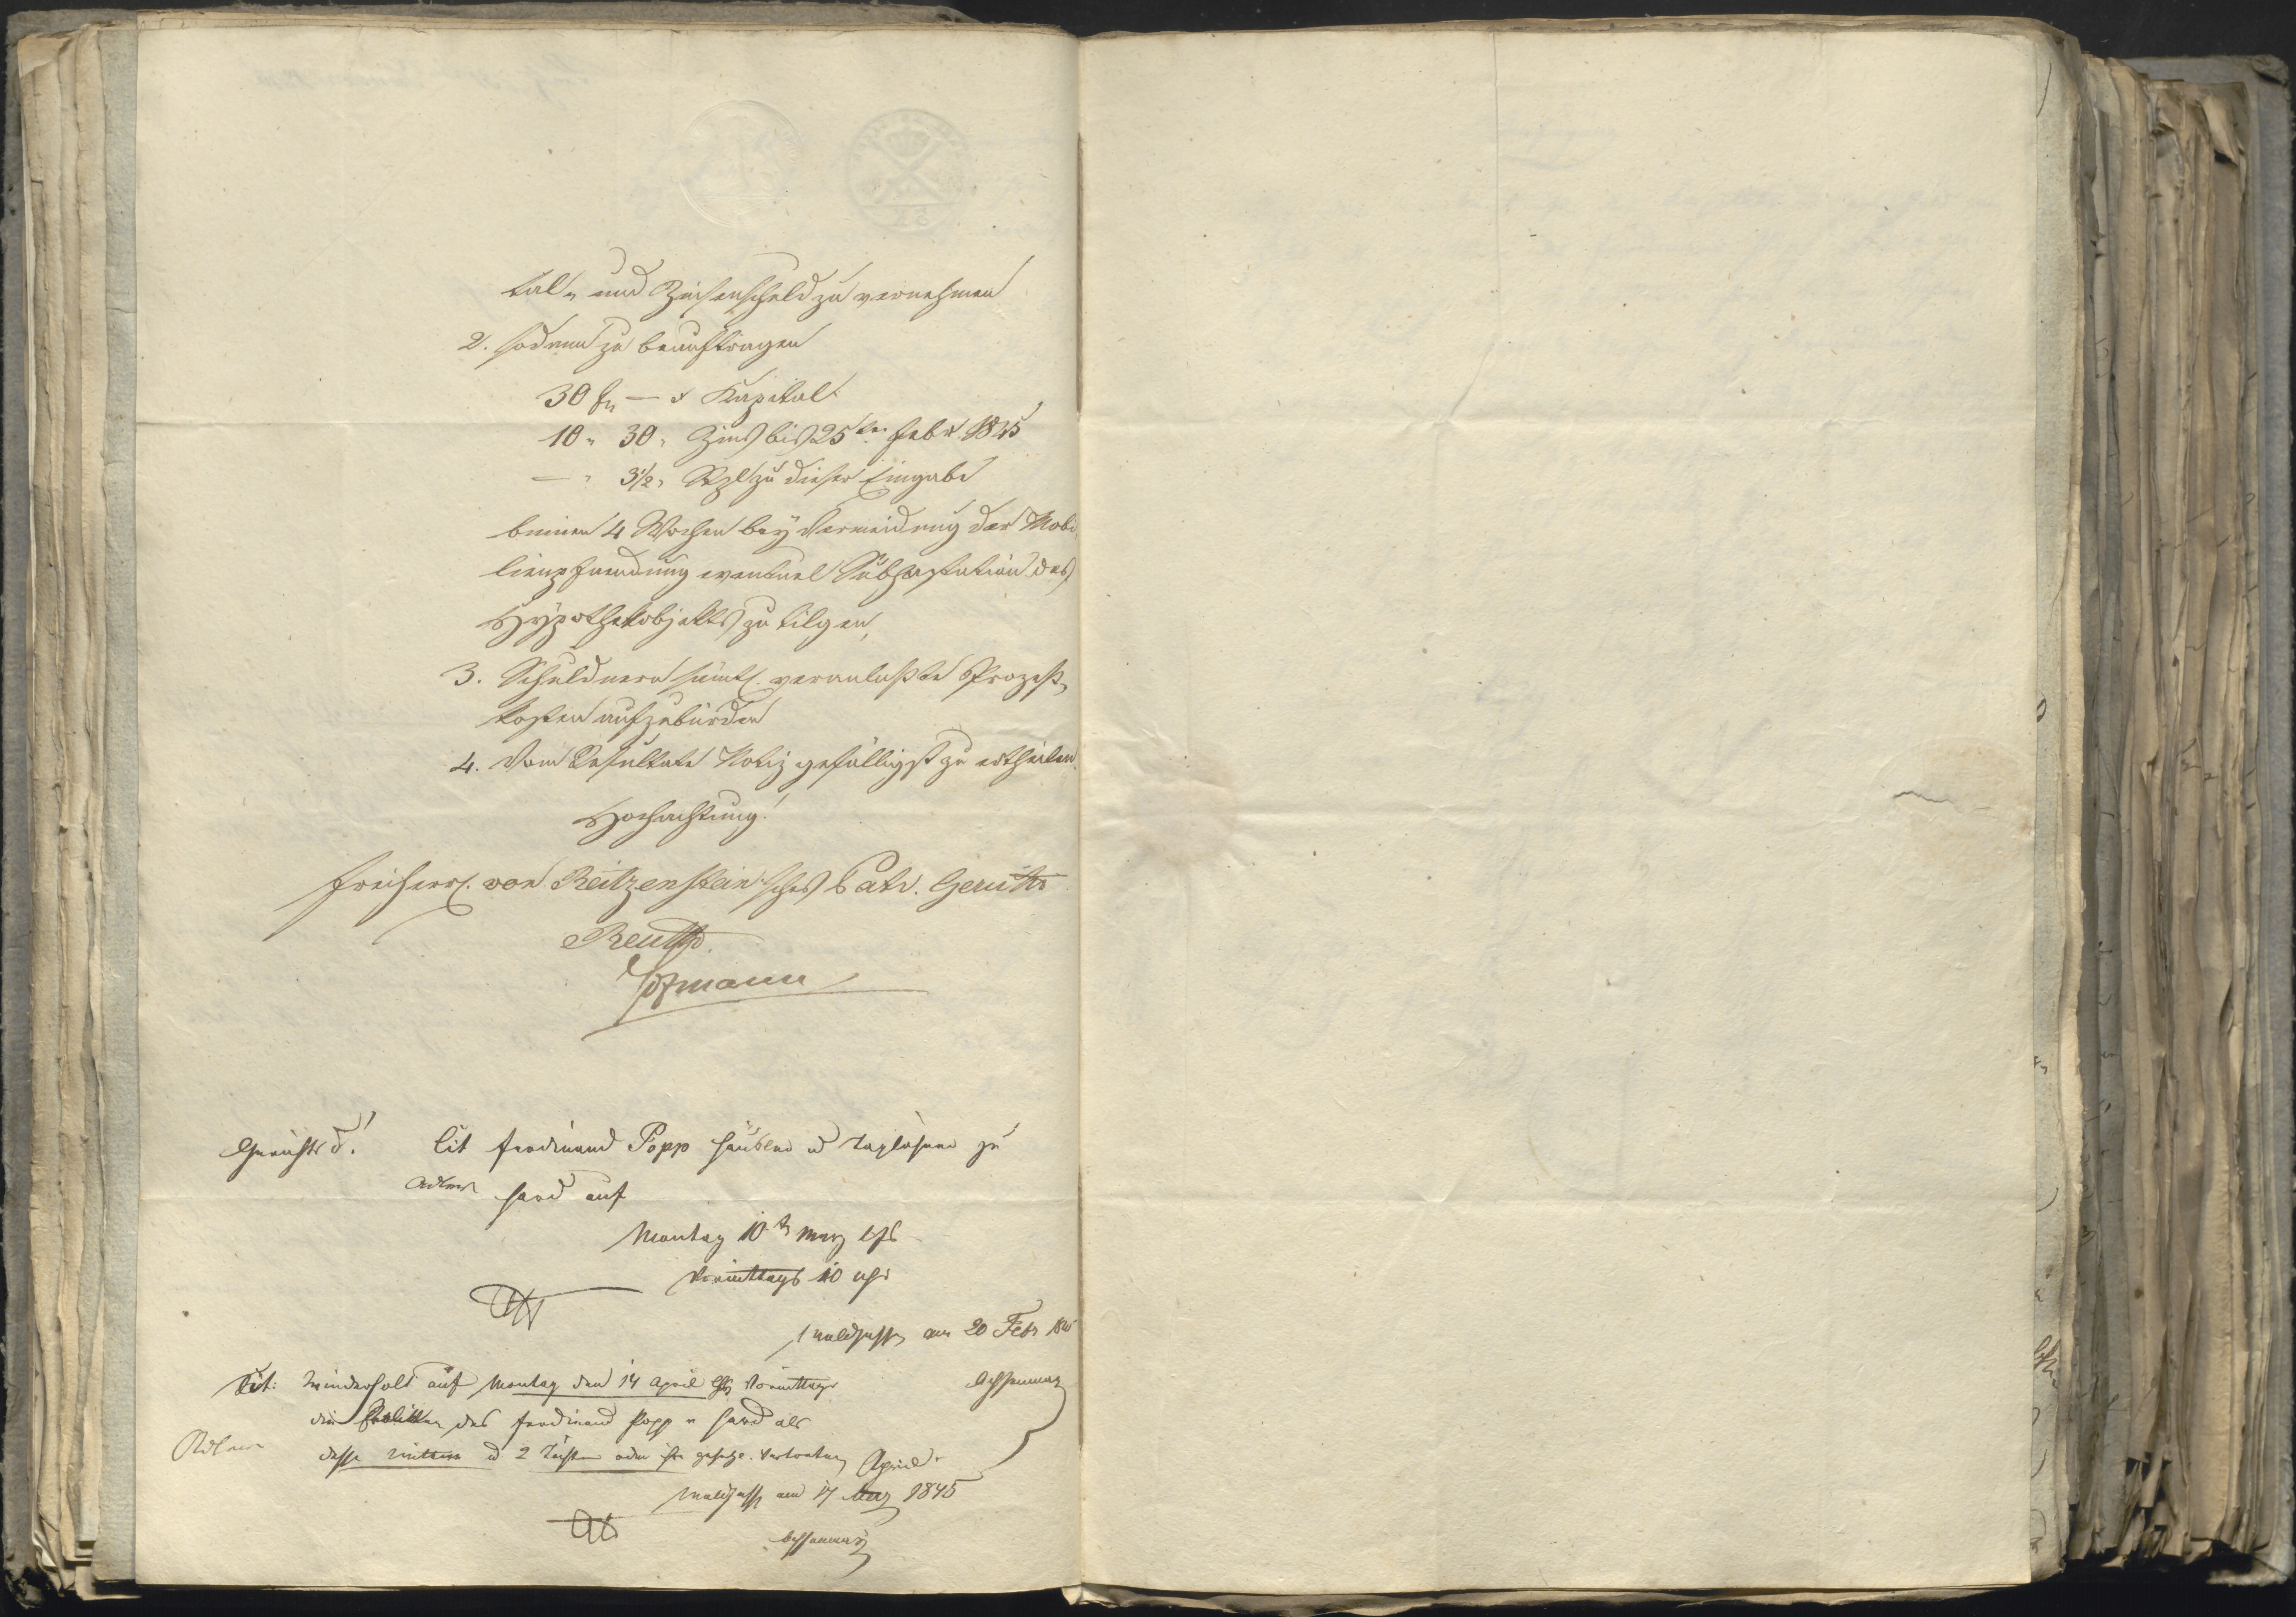 tal- und Zinsenschuld zu vernehmen
2. sodann zu beauftragen
30 fr — x Kapital
10 " 30 " Zins bis 25ten Febr. 1845
— " 3½ " Stpl zu dieser Eingabe
binnen 4 Wochen bey Vermeidung der Mobi
lienpfaendung eventuel Subhastation des
Hypothekobjekts zu tilgen,
3. Schuldnern sämtl. veranlaßte Prozeß-
kosten aufzubürden
4. Vom Resultate Notiz gefälligst zu ertheilen.
Hochachtung!
Freiherrl. von Reitzenstein'sches Patr. Gericht
Reuth.
Hofmann
Cit Ferdinand Popp Häusler u Taglöhner zu
Hard auf
Montag 10t Merz
Vormittags 10 Uhr
Waldsassen am 20 Febr 1845
Cit: wiederholt auf Montag den 14 April Vormittags
die des Ferdinand Popp v Hard als
dessen Wittwe u 2 Töchter oder ihre gesetzl. Vertreter
April
Waldsassen am 17 Merz 1845